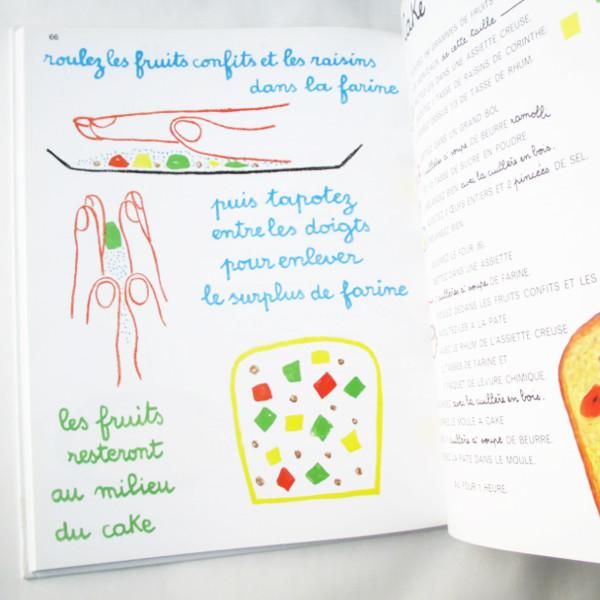 66
roulez les fruits confits et les raisins
dans la farine
puis tapotez
entre les doigts
pour enlever
le surplus de farine
les fruits
resteront
au milieu
du cake
Cake
GRAMMES DE FRUITS
de cette taille
DANS UNE ASSIETTE CREUSE,
TASSE DE RAISINS DE CORINTHE
DESSUS 1/3 DE TASSE DE RHUM.
DANS UN GRAND BOL
à soupe DE BEURRE ramolli
TASSE DE SUCRE EN POUDRE
BIEN avec la cuillère en bois.
ŒUFS ENTIERS ET 2 pincées DE SEL.
BIEN
LE FOUR (6).
DANS UNE ASSIETTE
cuillères à soupe DE FARINE.
DEDANS LES FRUITS CONFITS ET LES
LA PATE
LE RHUM DE L'ASSIETTE CREUSE
TASSES DE FARINE ET
DE LEVURE CHIMIQUE.
avec la cuillère en bois.
LE MOULE A CAKE
cuillère à soupe DE BEURRE.
LA PATE DANS LE MOULE.
AU FOUR 1 HEURE.